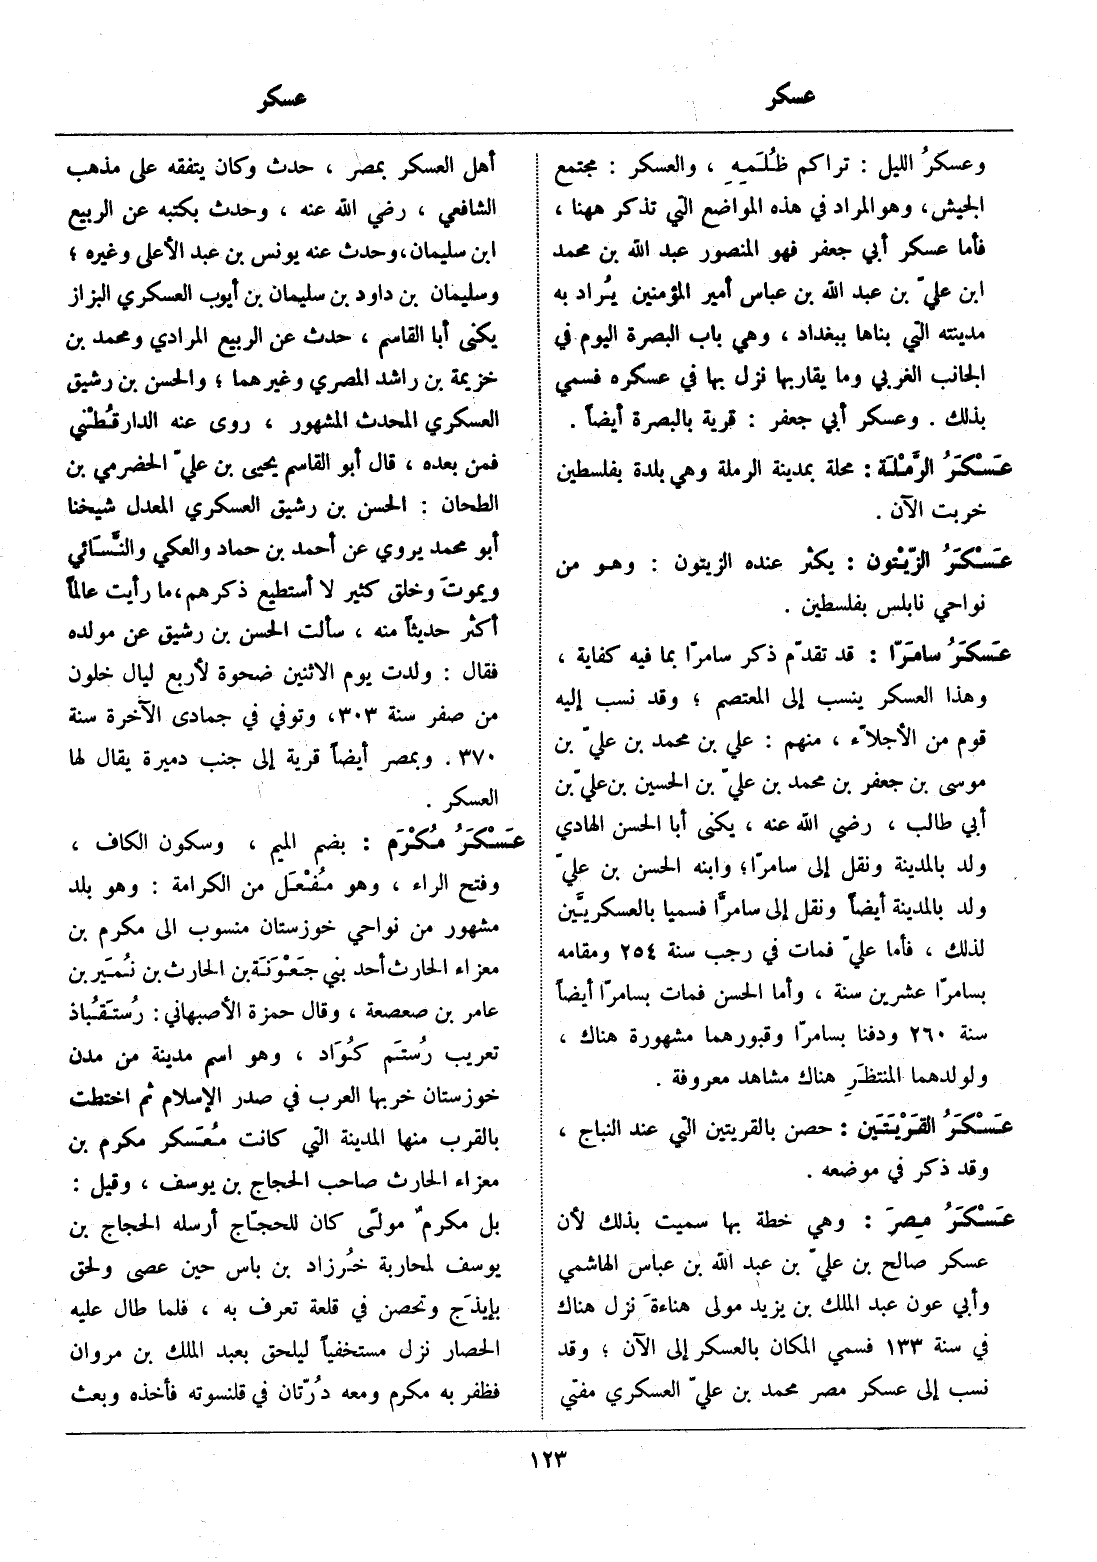 عسكر
عسكر
وعسكرُ الليل : تراكم ظُلَمِهِ ، والعسكر : مجتمع
الجيش، وهو المراد في هذه المواضع التي تذكر ههنا ،
فأما عسكر أبي جعفر فهو المنصور عبد الله بن محمد
ابن عليّ بن عبد الله بن عباس أمير المؤمنين يُراد به
مدينته التي بناها ببغداد ، وهي باب البصرة اليوم في
الجانب الغربي وما يقاربها نزل بها في عسكره فسمي
بذلك . وعسكر أبي جعفر : قرية بالبصرة أيضاً .
عَسْكَرُ الرَّمْلَة : محلة بمدينة الرملة وهي بلدة بفلسطين
خربت الآن .
عَسْكَرُ الزّيْتُون : يكثر عنده الزيتون : وهو من
نواحي نابلس بفلسطين .
عَسكَرُ سامَرّا : قد تقدّم ذكر سامرّا بما فيه كفاية ،
وهذا العسكر ينسب إلى المعتصم ؛ وقد نسب إليه
قوم من الأجلاّء ، منهم : علي بن محمد بن عليّ بن
موسى بن جعفر بن محمد بن عليّ بن الحسين بن عليّ بن
أبي طالب ، رضي الله عنه ، يكنى أبا الحسن الهادي
ولد بالمدينة ونقل إلى سامرّا؛ وابنه الحسن بن عليّ
ولد بالمدينة أيضاً ونقل إلى سامرَّا فسميا بالعسكريَّين
لذلك ، فأما عليّ فمات في رجب سنة ٢٥٤ ومقامه
بسامرّا عشرين سنة ، وأما الحسن فمات بسامرّا أيضاً
سنة ٢٦٠ ودفنا بسامرّا وقبورهما مشهورة هناك ،
ولولدهما المنتظَرِ هناك مشاهد معروفة .
عَسْكَرُ القَرْيَتَين : حصن بالقريتين التي عند النباج ،
وقد ذكر في موضعه .
عَسْكَرُ مِصرَ : وهي خطة بها سميت بذلك لأن
عسكر صالح بن عليّ بن عبد الله بن عباس الهاشمي
وأبي عون عبد الملك بن يزيد مولى هناءةَ نزل هناك
في سنة ١٣٣ فسمي المكان بالعسكر إلى الآن ؛ وقد
نسب إلى عسكر مصر محمد بن عليّ العسكري مفتي
أهل العسكر بمصر ، حدث وكان يتفقه على مذهب
الشافعي ، رضي الله عنه ، وحدث بكتبه عن الربيع
ابن سليمان، وحدث عنه يونس بن عبد الأعلى وغيره ؛
وسليمان بن داود بن سليمان بن أيوب العسكري البزاز
يكنى أبا القاسم ، حدث عن الربيع المرادي ومحمد بن
خزيمة بن راشد المصري وغيرهما ؛ والحسن بن رشيق
العسكري المحدث المشهور ، روى عنه الدارقُطْني
فمن بعده ، قال أبو القاسم يحيى بن عليّ الحضرمي بن
الطحان : الحسن بن رشيق العسكري المعدل شيخنا
أبو محمد يروي عن أحمد بن حماد والعكي والنَّسَائي
ويموتَ وخلق كثير لا أستطيع ذكرهم، ما رأيت عالماً
أكثر حديثاً منه ، سألت الحسن بن رشيق عن مولده
فقال : ولدت يوم الاثنين ضحوة لأربع ليال خلون
من صفر سنة ٣٠٣، وتوفي في جمادى الآخرة سنة
٣٧٠ . وبمصر أيضاً قرية إلى جنب دميرة يقال لها
العسكر .
عَسْكَرُ مُكْرَم : بضم الميم ، وسكون الكاف ،
وفتح الراء ، وهو مُفْعَل من الكرامة : وهو بلد
مشهور من نواحي خوزستان منسوب الى مكرم بن
معزاء الحارث أحد بني جَعْوَنَة بن الحارث بن نُمَير بن
عامر بن صعصعة ، وقال حمزة الأصبهاني : رُستَقُباذ
تعريب رُستَم كُوَاد ، وهو اسم مدينة من مدن
خوزستان خربها العرب في صدر الإسلام ثم اختطت
بالقرب منها المدينة التي كانت مُعَسكر مكرم بن
معزاء الحارث صاحب الحجاج بن يوسف ، وقيل :
بل مكرمٌ مولًى كان للحجّاج أرسله الحجاج بن
يوسف لمحاربة خُرزاد بن باس حين عصى ولحق
بإيذَج وتحصن في قلعة تعرف به ، فلما طال عليه
الحصار نزل مستخفياً ليلحق بعبد الملك بن مروان
فظفر به مكرم ومعه دُرّتان في قلنسوته فأخذه وبعث
١٢٣